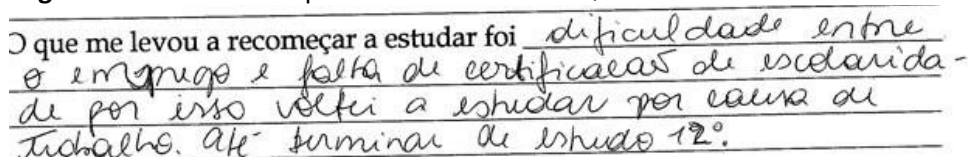 O que me levou a recomeçar a estudar foi dificuldade entre
o emprego e falta de certificacaõ de escolarida-
de por isso voltei a estudar por causa de
trabalho. até terminar de estudo 12º